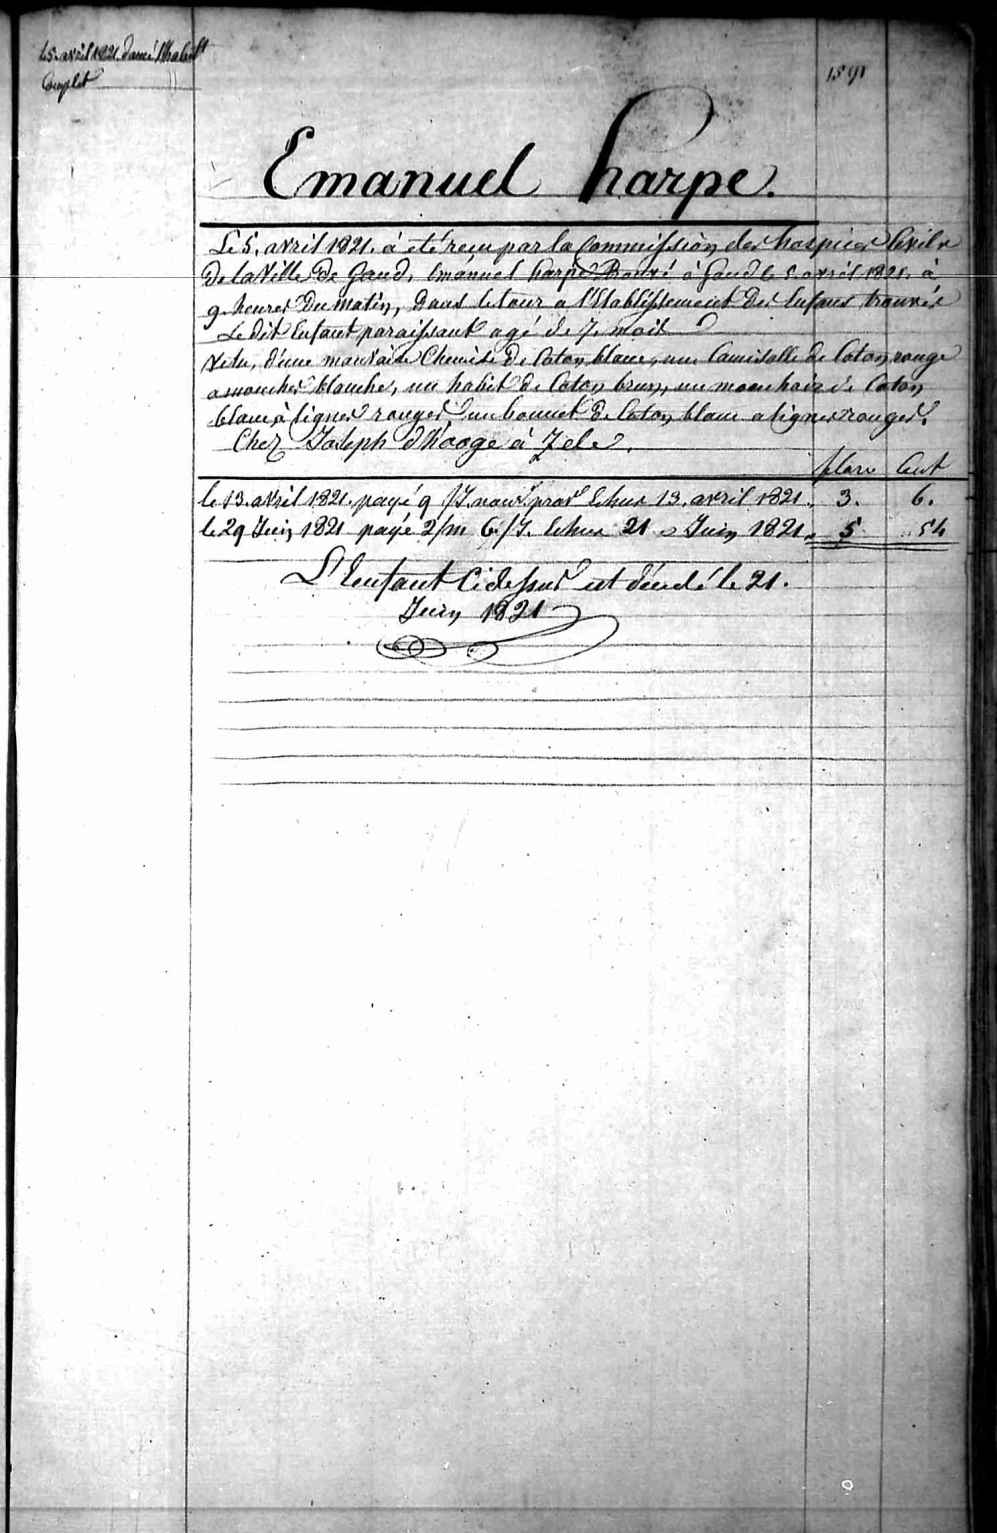 Le 5. avril 1821. donné l'habill.t
Complet
1891
Emanuel harpe.
Le 5. avril 1821. à été reçu par la Commission des hospices Civils
De la Ville De Gand, Emanuel harpe Trouvé à Gand le 5 avril 1821. à
9. heures Du matin, Dans le tour a l'Etablissement Des Enfans trouvés
Le dit Enfant paraissant agé de 7. mois
Vetu, d'une mauvaise Chemise De Coton blanc, une Camisolle de Coton rouge
a mouches blanches, un habit de Coton brun, un mouchoir de Coton
blanc à lignes rouges un bonnet De Coton blanc a lignes rouges.
Chez Joseph d'hooge à Zele.
flors Cent
le 13. avril 1821. payé 9 /J. nour prov Echus 13. avril 1821. 3. 6.
le 29 Juin 1821 payé 2/m 6./J. Echus 21 Juin 1821. 5 54
L'Enfant Ci dessus est décédé le 21.
Juin 1821